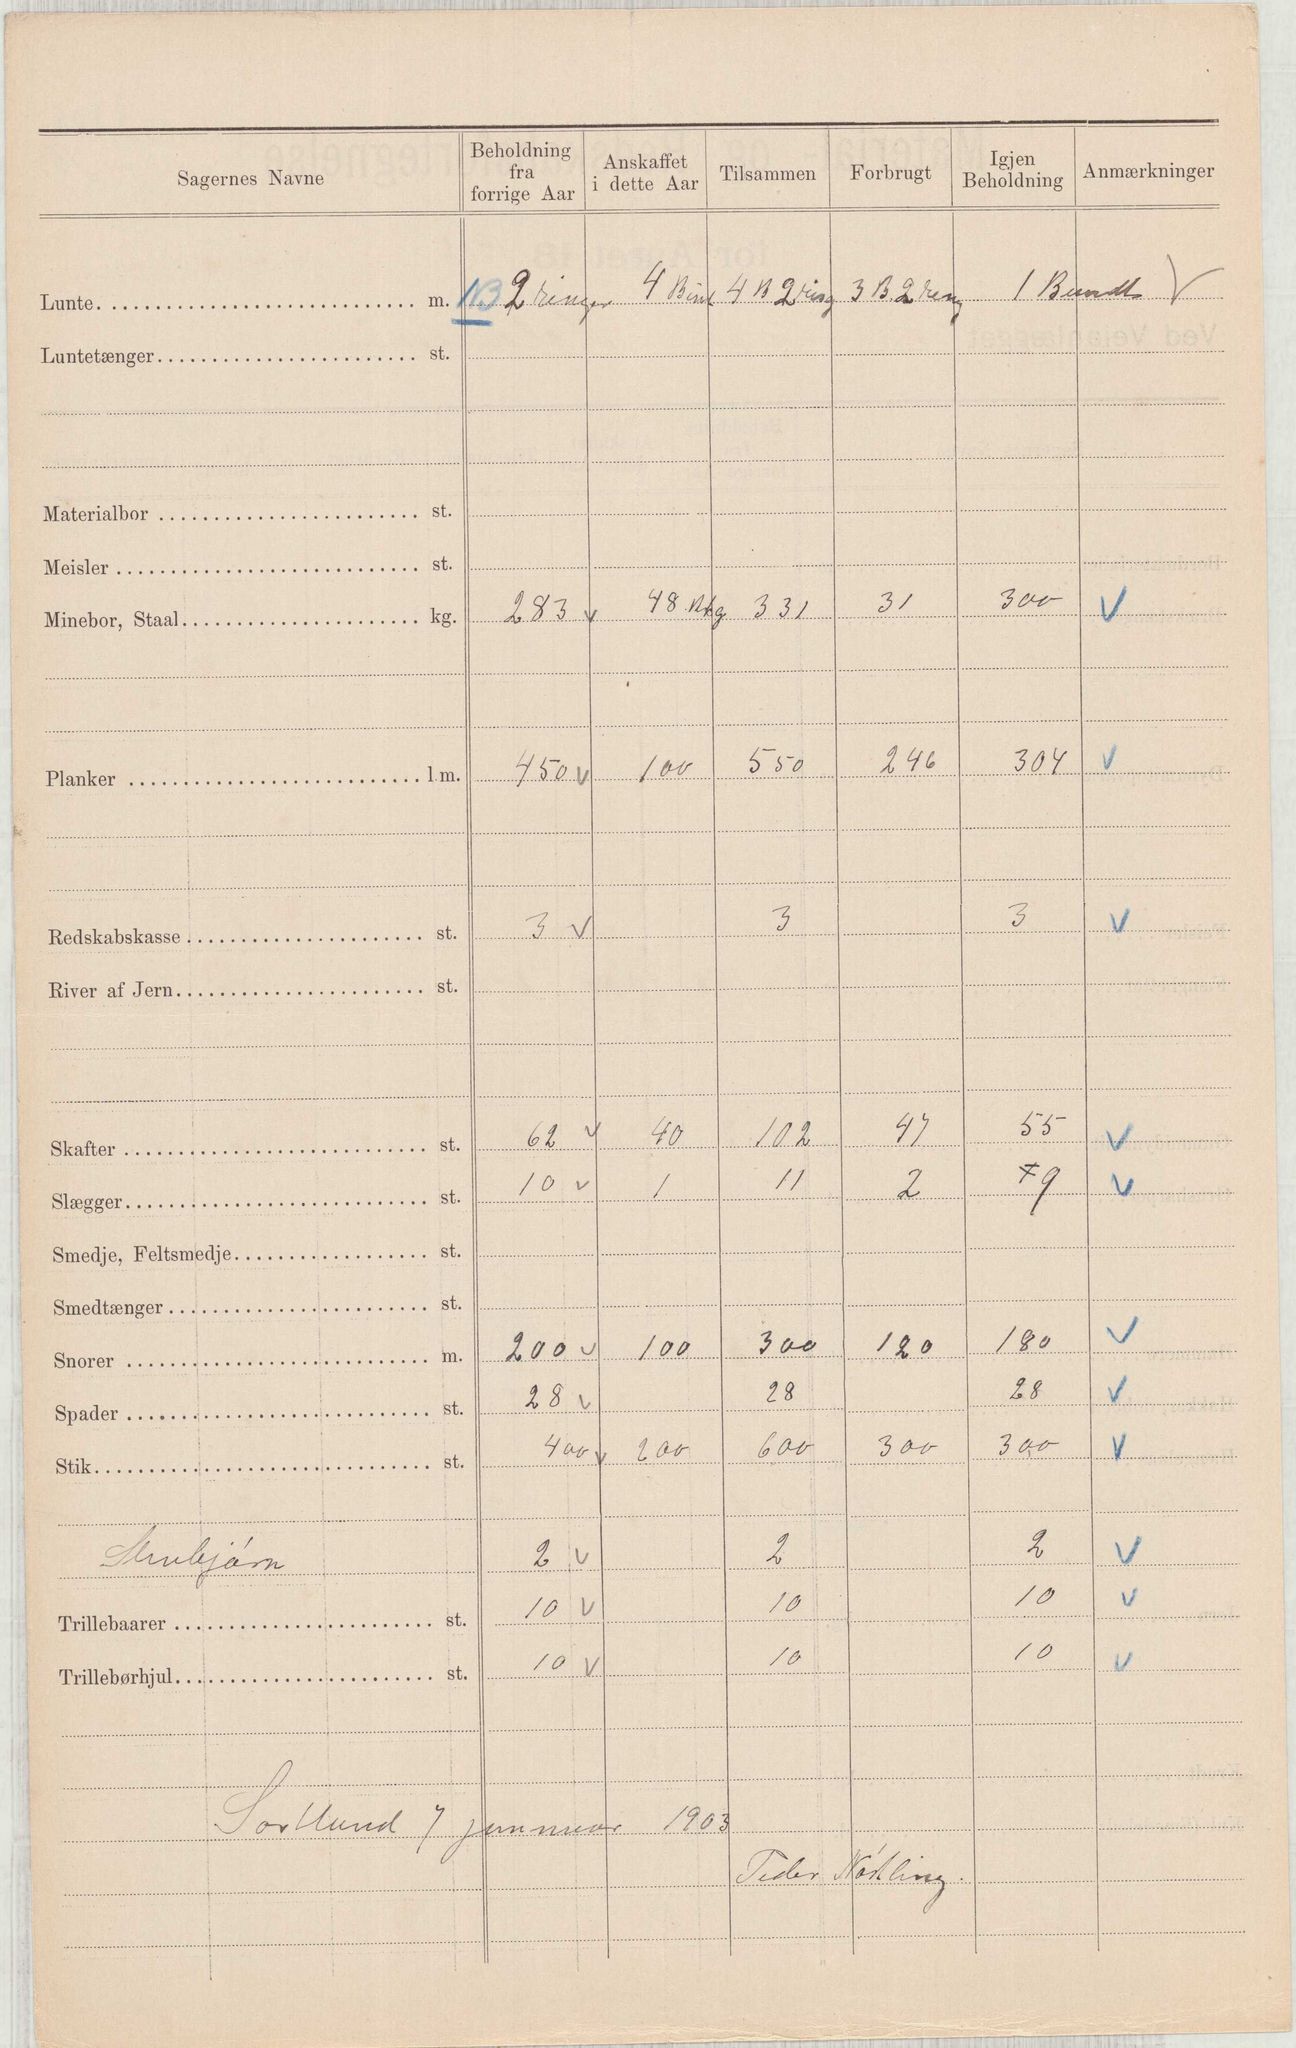 Sagernes Navne | Beholdning fra forrige Aar | Anskaffet i dette Aar | Tilsammen | Forbrugt | Igjen Beholdning | Anmærkninger
Lunte m. 1B 2 ringer 4 Bint 4 B 2 ring 3 B 2 ring 1 Bundt V
Luntetænger st.
Materialbor st.
Meisler st.
Minebor, Staal kg. 283 v 48 331 31 300 V
Planker l m. 450 v 100 550 246 304 V
Redskabskasse st. 3 v 3 3 V
River af Jern st.
Skafter st. 62 v 40 102 47 55 V
Slægger st. 10 v 1 11 2 9 V
Smedje, Feltsmedje st.
Smedtænger st.
Snorer m. 200 v 100 300 120 180 V
Spader st. 28 v 28 28 V
Stik st. 400 v 200 600 300 300 V
2 v 2 2 V
Trillebaarer st. 10 v 10 10 V
Trillebørhjul st. 10 v 10 10 V
Sortland 7 januar 1903
Peder